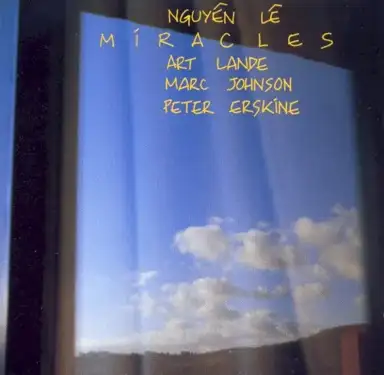 NGUYÊN LÊ
MIRACLES
ART LANDE
MARC JOHNSON
PETER ERSKINE